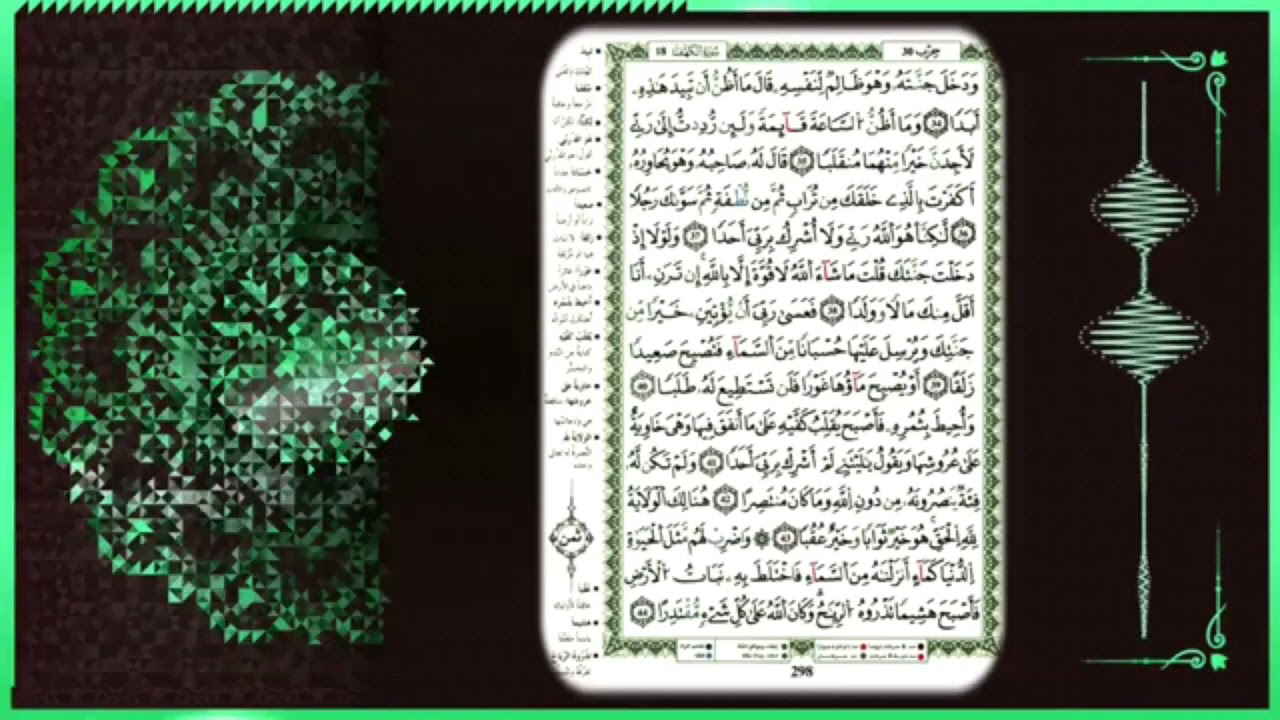 سُورَةُ الكَهْفِ 18
حِزْب 30
وَدَخَلَ جَنَّتَهُۥ وَهُوَ ظَالِمٌ لِّنَفْسِهِۦ قَالَ مَا أَظُنُّ أَن تَبِيدَ هَٰذِهِۦ
أَبَدًا 34 وَمَا أَظُنُّ اُ۬لسَّاعَةَ قَآئِمَةً وَلَئِن رُّدِدتُّ إِلَىٰ رَبِّے
لَأَجِدَنَّ خَيْرًا مِّنْهُمَا مُنقَلَبًا 35 قَالَ لَهُۥ صَاحِبُهُۥ وَهُوَ يُحَاوِرُهُۥ
أَكَفَرْتَ بِالَّذِے خَلَقَكَ مِن تُرَابٍ ثُمَّ مِن نُّطْفَةٍ ثُمَّ سَوَّىٰكَ رَجُلًا
36 لَّٰكِنَّا هُوَ اَ۬للَّهُ رَبِّے وَلَا أُشْرِكُ بِرَبِّيَ أَحَدًا 37 وَلَوْلَا إِذْ
دَخَلْتَ جَنَّتَكَ قُلْتَ مَا شَآءَ اَ۬للَّهُ لَا قُوَّةَ إِلَّا بِاللَّهِ إِن تَرَنِۦ أَنَا
أَقَلَّ مِنكَ مَالًا وَوَلَدًا 38 فَعَسَىٰ رَبِّيَ أَن يُّؤْتِيَنِۦ خَيْرًا مِّن
جَنَّتِكَ وَيُرْسِلَ عَلَيْهَا حُسْبَانًا مِّنَ اَ۬لسَّمَآءِ فَتُصْبِحَ صَعِيدًا
زَلَقًا 39 أَوْ يُصْبِحَ مَآؤُهَا غَوْرًا فَلَن تَسْتَطِيعَ لَهُۥ طَلَبًا 40
وَأُحِيطَ بِثُمُرِهِۦ فَأَصْبَحَ يُقَلِّبُ كَفَّيْهِ عَلَىٰ مَا أَنفَقَ فِيهَا وَهْيَ خَاوِيَةٌ
عَلَىٰ عُرُوشِهَا وَيَقُولُ يَٰلَيْتَنِے لَمْ أُشْرِكْ بِرَبِّيَ أَحَدًا 41 وَلَمْ تَكُن لَّهُۥ
فِئَةٌ يَنصُرُونَهُۥ مِن دُونِ اِ۬للَّهِ وَمَا كَانَ مُنتَصِرًا 42 هُنَالِكَ اَ۬لْوَلَٰيَةُ
لِلَّهِ اِ۬لْحَقِّ هُوَ خَيْرٌ ثَوَابًا وَخَيْرٌ عُقُبًا 43 ۞ وَاضْرِبْ لَهُم مَّثَلَ اَ۬لْحَيَوٰةِ
اِ۬لدُّنْيَا كَمَآءٍ أَنزَلْنَٰهُ مِنَ اَ۬لسَّمَآءِ فَاخْتَلَطَ بِهِۦ نَبَاتُ اُ۬لْأَرْضِ
فَأَصْبَحَ هَشِيمًا تَذْرُوهُ اُ۬لرِّيَٰحُ وَكَانَ اَ۬للَّهُ عَلَىٰ كُلِّ شَےْءٍ مُّقْتَدِرًا 44
ثُمن
298